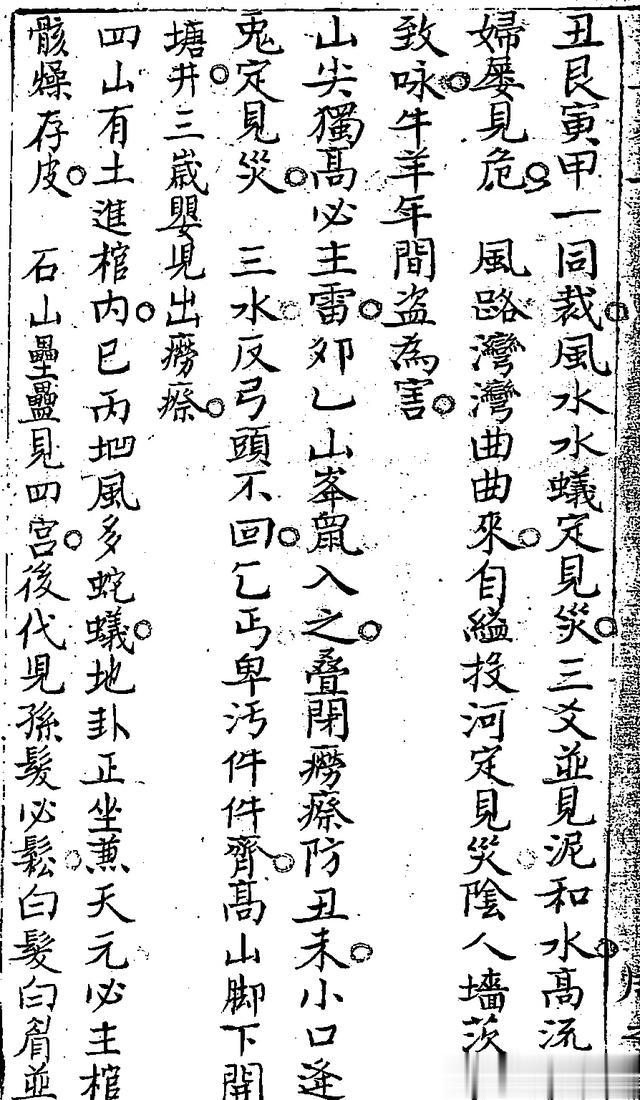 丑艮寅甲一同裁風水水蟻定見災三爻並見泥和水高流
婦孱見危　風路灣灣曲曲來自縊投河定見災陰人墻茨
致咏牛羊年間盜為害
山尖獨高必主雷夘乙山峯䑕入之叠閉癆瘵防丑未小口逄
兎定見災　三水反弓頭不回乞丐卑污件件齊高山脚下開
塘井三歲嬰児出癆瘵
四山有土進棺内巳丙地風多蛇蟻地卦正坐蕪天元必主棺
骸燥存皮　石山壘壘見四宫後代児孫髮必鬆白髮白眉並